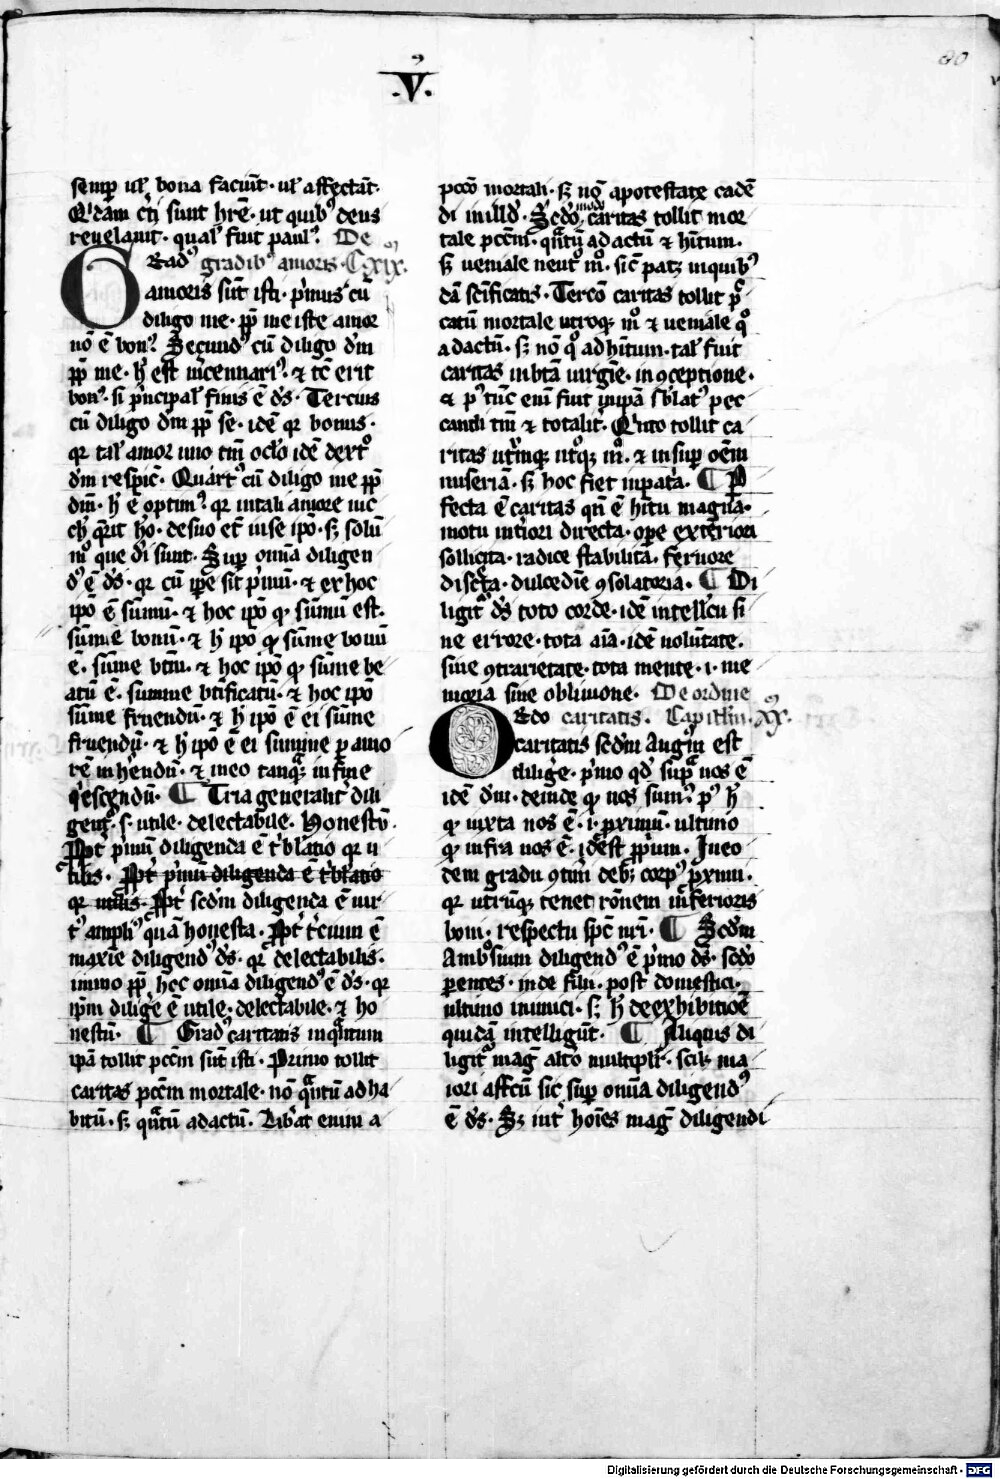 .V.
80
semꝑ ul̕ bona faciūt · ul̕ affectāt ·
Q̇dam c̄ti sunt hr̄e · ut quibꝰ deus
reuelauit · qual̕ fuit paulꝰ · De
Gradꝰ gradibꝰ amoris · C̓ xix ·
amoris sūt isti · p̓mus cū
diligo me · ꝓp̄ me iste amor
nō ē bonꝰ · Secundꝰ cū diligo dm̄
ꝓp̄ me · h̓ est m̓cennariꝰ · ⁊ tc̄ erit
bonꝰ · si p̓ncipal̕ finis ē ds̄ · Tercius
cū diligo dm̄ ꝓp̄ se · idē qꝛ bonus ·
qꝛ tal̕ amor uno tm̄ oc̄lo idē dextᵒ
dm̄ respic̄ · Quartꝰ cū diligo me ꝓp̄
dm̄ · h̓ ē optimꝰ · qꝛ intali amore nic̄
ch̓ q̄rit hō · desuo et̄ inse ip̄o · sꝫ solū
mᵒ que di̓ sunt · Suꝑ omīa diligen
dꝰ ē ds̄ · qꝛ cū ip̄e sit p̓mū · ⁊ ex hoc
ip̄o ē sūmū · ⁊ hoc ip̄o qꝛ sūmū est ·
sūme bonū · ⁊ h̓ ip̄o qꝛ sūme bonū
ē · sūme btm̄ · ⁊ hoc ip̄o qꝛ sūme be
atū ē · summe btificatū · ⁊ hoc ip̄o
sūme fruendū · ⁊ h̓ ip̄o ē ei sūme
fruendū · ⁊ h̓ ip̄o ē ei summe ꝑ amo
rē inh̓endū · ⁊ in eo tanqᵃꝫ in fine
q̓escendū · ¶ Tria generalit̓ dili
gent̓ · s · utile · delectabile · honestū ·
Ꝓpt̓ p̓mū diligenda ē t̓blatio qꝛ u
tilis · Ꝓpt̓ p̓mū diligenda ē t̓blatio
qꝛ utilis · Ꝓpt̓ scdm̄ diligenda ē uir
tꝰ ampliꝰ quā honesta · Ꝓpt̓ t̓cium ē
maxīe diligendꝰ ds̄ · qꝛ delectabilis ·
immo ꝓp̄ hec omīa diligendꝰ ē ds̄ · qꝛ
ip̄m dilig̓e ē utile · delectabile · ⁊ ho
nestū · ¶ Gradꝰ caritatis inqᵃntum
ip̄a tollit pcc̄m sūt isti · Primo tollit
caritas pcc̄m mortale · nō qᵃntū ad ha
bitū · sꝫ qᵃntū ad actū · Lib̓at enim a
pccō mortali · sꝫ nō apotestate cadē
di in illd̓ · Scdō modo caritas tollit mor
tale pcc̄m · qᵃntū ad actū ⁊ hītum ·
sꝫ ueniale neutᵒ mᵒ · sic̄ patꝫ in quibꝰ
dā sc̄ificatis · Tercō caritas tollit pec̄
catū mortale utroqꝫ mᵒ ⁊ ueniale qᵒ
ad actū · sꝫ nō qᵒ ad hītum · tal̕ fuit
caritas in btā uirgīe · in ꝯceptione ·
⁊ pꝰ tūc enī fuit in ip̄a sb̓latꝰ pec
candi tm̄ ⁊ totalit̓ · Q̓rto tollit ca
ritas utrūqꝫ utᵒqꝫ mᵒ · ⁊ insuꝑ oēm
miseriā · sꝫ hoc fiet in pat̓a · ¶ Ꝑ
fecta ē caritas qn̄ ē hītu magna ·
motu int̓iori directa · oꝑe exteriori
sollicita · radice stabilita · feruore
discreta · dulcedīe ꝯsolatoria · ¶ Di
ligit̓ ds̄ toto corde · idē intell̓cu si
ne errore · tota aīa · idē uolūtate ·
sine ꝯtrarietate · tota mente · i · me
moria sine obliuione · De ordine
Ordo caritatis · Capitlm̄ · xx ·
caritatis scdm̄ Aug̓m est
dilig̓e · p̓mo qd̓ supᵃ nos ē
idē dm̄ · deinde qꝛ nos sumꝰ · pꝰ h̓
qꝛ iuxta nos ē · i · ꝓximū · ultimo
qꝛ infra nos ē · idest ꝓp̓um · In eo
dem gradu ꝯtin̓ debꝫ corpꝰ ꝓximi ·
qꝛ utrūqꝫ tenet rōnem inferioris
boni · respectu sp̄c nr̄i · ¶ Scdm̄
Ambꝰsium diligendꝰ ē p̓mo ds̄ · scdō
ꝑentes · inde filii · post domestici ·
ultimo inimici · sꝫ h̓ deexhibitiōe
quidā intelligūt · ¶ Aliquis di
ligit̓ mag̓ alt̓o multiplr̄ · scilꝫ ma
iori affc̄u sic suꝑ omīa diligendꝰ
ē ds̄ · Sꝫ int̓ hoīes mag̓ diligendi
Digitalisierung gefördert durch die Deutsche Forschungsgemeinschaft - DFG